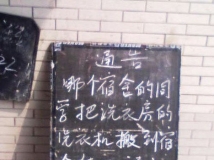 通告
哪个宿舍的同
学把洗衣房的
洗衣机搬到宿